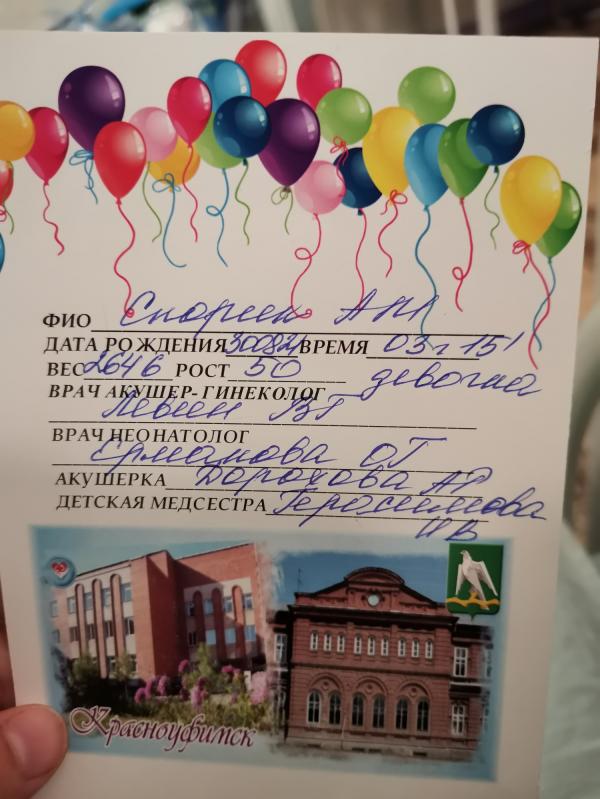 ФИО Спорин АН
ДАТА РОЖДЕНИЯ 300821 ВРЕМЯ 03 г 15'
ВЕС 2646 РОСТ 50 девочка
ВРАЧ АКУШЕР-ГИНЕКОЛОГ
Левин ВГ
ВРАЧ НЕОНАТОЛОГ
Ермакова ОГ
АКУШЕРКА Дорохова АР
ДЕТСКАЯ МЕДСЕСТРА Геросимова
ИВ
Красноуфимск